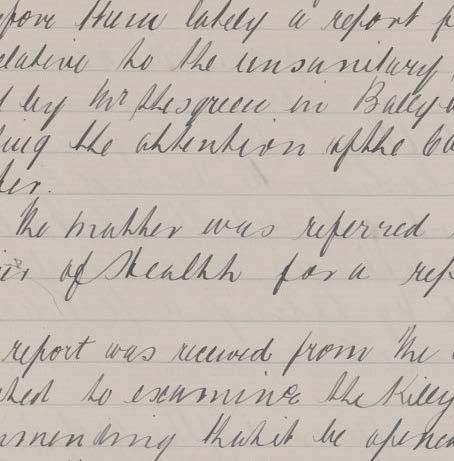 before them lately a report f
elative to the unsanitary
d by Mr thesgreen in Bally
ling the attention of the Co
ter.
The matter was referred
cer of Health for a rep
report was received from the
nted to examine the Killy
ommending that it be opened